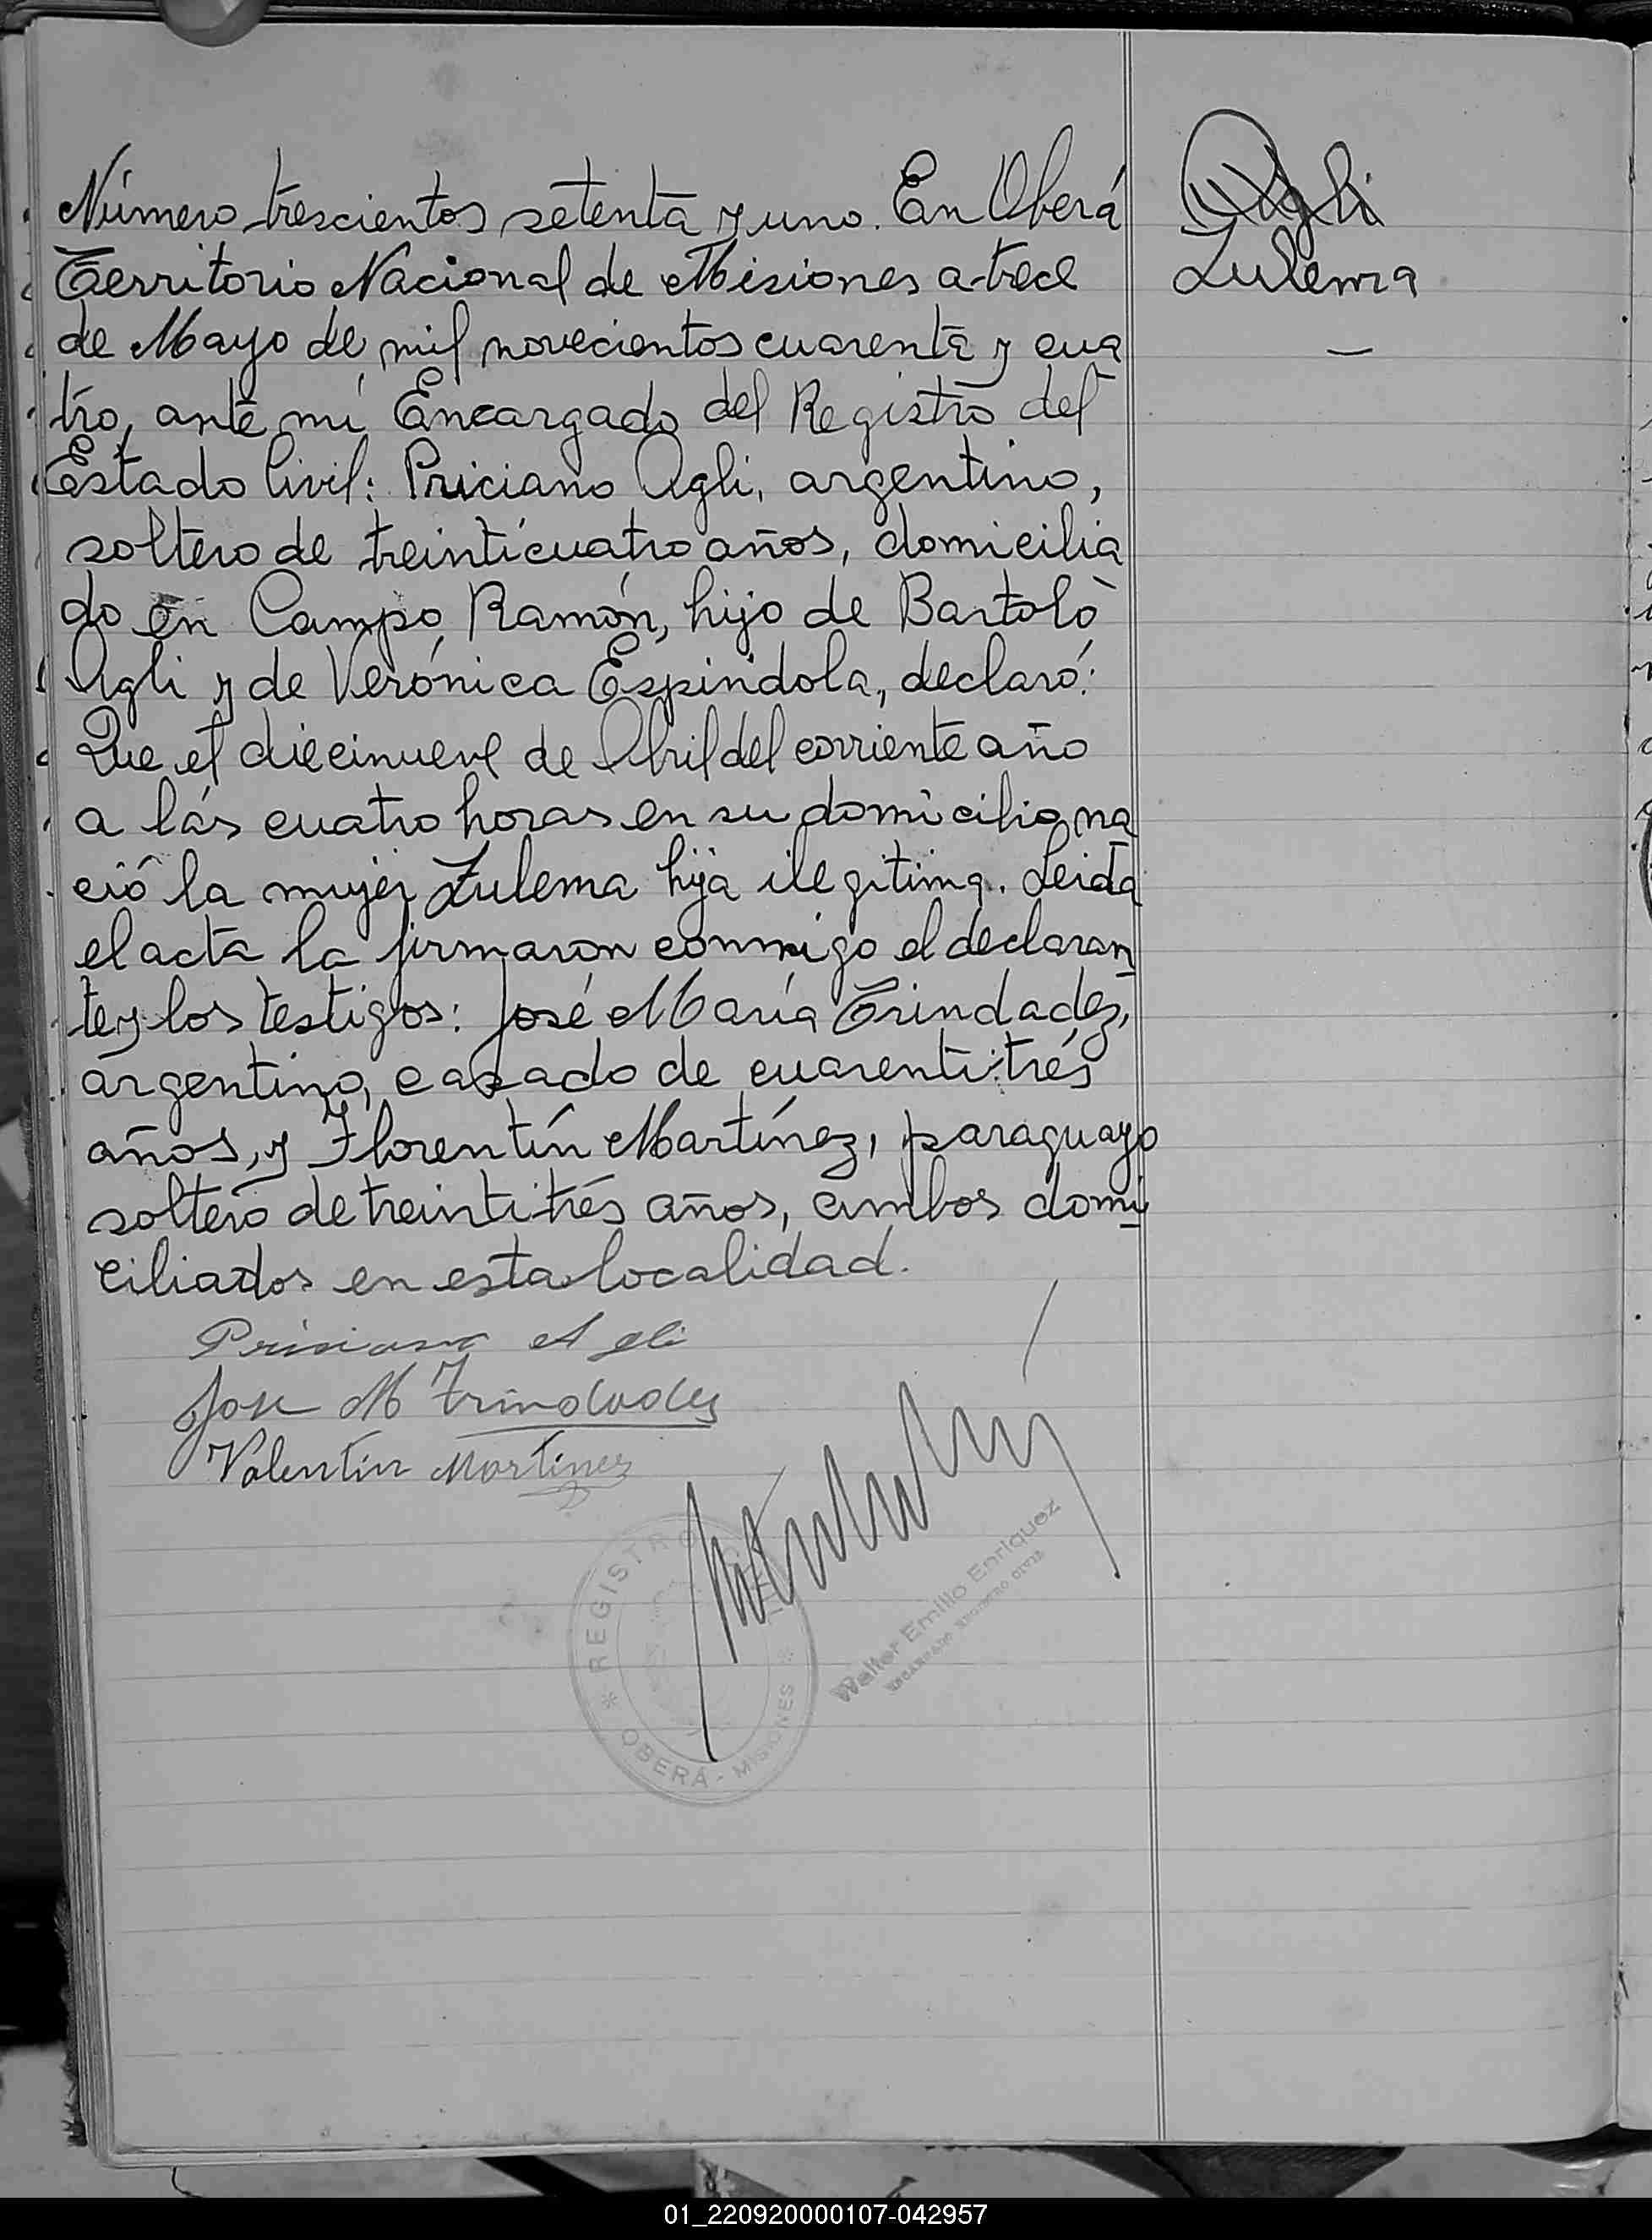 Número trescientos setenta y uno. En Oberá
Territorio Nacional de Misiones a trece
de Mayo de mil novecientos cuarenta y cua
tro, ante mí Encargado del Registro del
Estado Civil: Priciano Agli, argentino,
soltero de treinticuatro años, domicilia
do en Campo Ramón, hijo de Bartolo
Agli y de Verónica Espindola, declaró:
Que el diecinueve de Abril del corriente año
a las cuatro horas en su domicilio na
ció la mujer Zulema hija ilegitima. Leida
el acta la firmaron conmigo el declaran
te y los testigos: José María Trindadez,
argentino, casado de cuarentitrés
años, y Florentín Martínez, paraguayo
soltero de treintitrés años, ambos domi
ciliados en esta localidad.
Prisiano Agli
Jose M Trindadez
Valentin Martinez
REGISTRO
OBERÁ - MISIONES
Walter Emilio Enriquez
ENCARGADO REGISTRO CIVIL
Agli
Zulema
01_220920000107-042957